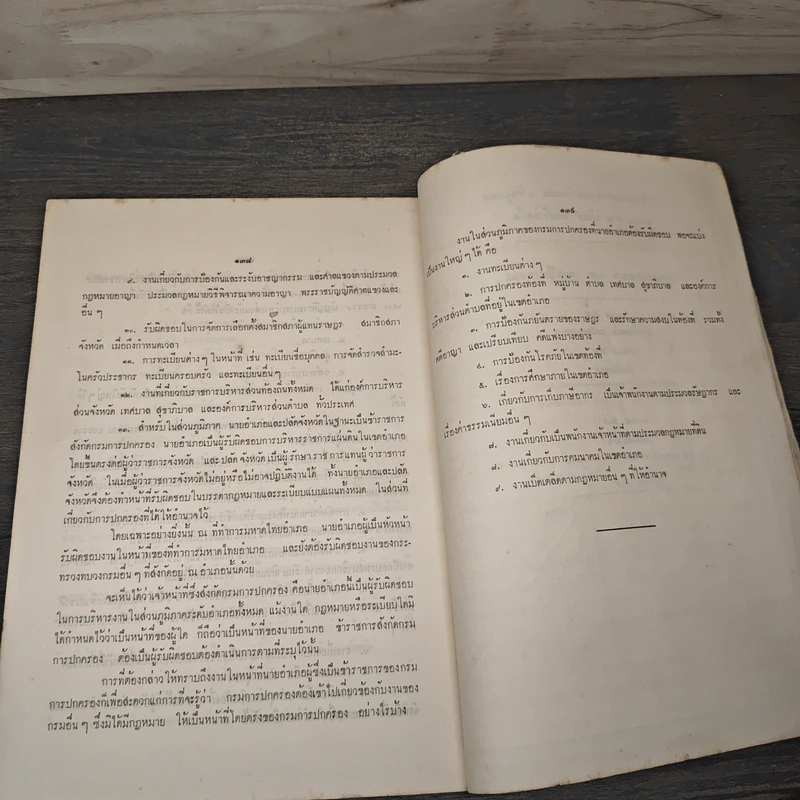 ๑๓๗
๙. งานเกี่ยวกับการป้องกันและระงับอาชญากรรม และศาลแขวงตามประมวล
กฎหมายอาญา ประมวลกฎหมายวิธีพิจารณาความอาญา พระราชบัญญัติศาลแขวงและ
อื่น ๆ
๑๐. รับผิดชอบในการจัดการเลือกตั้งสมาชิกสภาผู้แทนราษฎร สมาชิกสภา
จังหวัด เมื่อถึงกำหนดเวลา
๑๑. การทะเบียนต่าง ๆ ในหน้าที่ เช่น ทะเบียนชื่อบุคคล การจดสำรวจสำมะ-
โนครัวประชากร ทะเบียนครอบครัว และทะเบียนอื่น ๆ
๑๒. งานที่เกี่ยวกับราชการบริหารส่วนท้องถิ่นทั้งหมด ได้แก่องค์การบริหาร
ส่วนจังหวัด เทศบาล สุขาภิบาล และองค์การบริหารส่วนตำบล ทั่วประเทศ
๑๓. สำหรับในส่วนภูมิภาค นายอำเภอและปลัดจังหวัดในฐานะเป็นข้าราชการ
สังกัดกรมการปกครอง นายอำเภอเป็นผู้รับผิดชอบการบริหารราชการแผ่นดินในเขตอำเภอ
โดยขึ้นตรงต่อผู้ว่าราชการจังหวัด และปลัดจังหวัดเป็นผู้รักษาราชการแทนผู้ว่าราชการ
จังหวัด ในเมื่อผู้ว่าราชการจังหวัดไม่อยู่หรือไม่อาจปฏิบัติงานได้ ทั้งนายอำเภอและปลัด
จังหวัดจึงต้องทำหน้าที่รับผิดชอบในบรรดากฎหมายและระเบียบแบบแผนทั้งหมด ในส่วนที่
เกี่ยวกับการปกครองที่ได้ให้อำนาจไว้
โดยเฉพาะอย่างยิ่งนั้น ณ ที่ทำการมหาดไทยอำเภอ นายอำเภอผู้เป็นหัวหน้า
รับผิดชอบงานในหน้าที่ของที่ทำการมหาดไทยอำเภอ และยังต้องรับผิดชอบงานของกระ-
ทรวงทบวงกรมอื่น ๆ ที่สังกัดอยู่ ณ อำเภอนั้นด้วย
จะเห็นได้ว่าเจ้าหน้าที่ซึ่งสังกัดกรมการปกครอง คือนายอำเภอนี้เป็นผู้รับผิดชอบ
ในการบริหารงานในส่วนภูมิภาคระดับอำเภอทั้งหมด แม้งานใด กฎหมายหรือระเบียบใดมิ
ได้กำหนดไว้ว่าเป็นหน้าที่ของผู้ใด ก็ถือว่าเป็นหน้าที่ของนายอำเภอ ข้าราชการสังกัดกรม
การปกครอง ต้องเป็นผู้รับผิดชอบต้องดำเนินการตามที่ระบุไว้นั้น
การที่ต้องกล่าวให้ทราบถึงงานในหน้าที่นายอำเภอผู้ซึ่งเป็นข้าราชการของกรม
การปกครองก็เพื่อสะดวกแก่การที่จะรู้ว่า กรมการปกครองต้องเข้าไปเกี่ยวข้องกับงานของ
กรมอื่น ๆ ซึ่งมิได้มีกฎหมาย ให้เป็นหน้าที่โดยตรงของกรมการปกครอง อย่างไรบ้าง
๑๓๙
งานในส่วนภูมิภาคของกรมการปกครองที่นายอำเภอต้องรับผิดชอบ พอจะแบ่ง
เป็นงานใหญ่ ๆ ได้ คือ
๑. งานทะเบียนต่าง ๆ
๒. การปกครองท้องที่ หมู่บ้าน ตำบล เทศบาล สุขาภิบาล และองค์การ
บริหารส่วนตำบลที่อยู่ในเขตอำเภอ
๓. การป้องกันภยันตรายของราษฎร และรักษาความสงบในท้องที่ รวมทั้ง
คดีอาญา และเปรียบเทียบ คดีแพ่งบางอย่าง
๔. การป้องกันโรคภัยในเขตท้องที่
๕. เรื่องการศึกษาภายในเขตอำเภอ
๖. เกี่ยวกับการเก็บภาษีอากร เป็นเจ้าพนักงานตามประมวลรัษฎากร และ
เรื่องค่าธรรมเนียมอื่น ๆ
๗. งานเกี่ยวกับเป็นพนักงานเจ้าหน้าที่ตามประมวลกฎหมายที่ดิน
๘. งานเกี่ยวกับการคมนาคมในเขตอำเภอ
๙. งานเบ็ดเตล็ดตามกฎหมายอื่น ๆ ที่ให้อำนาจ